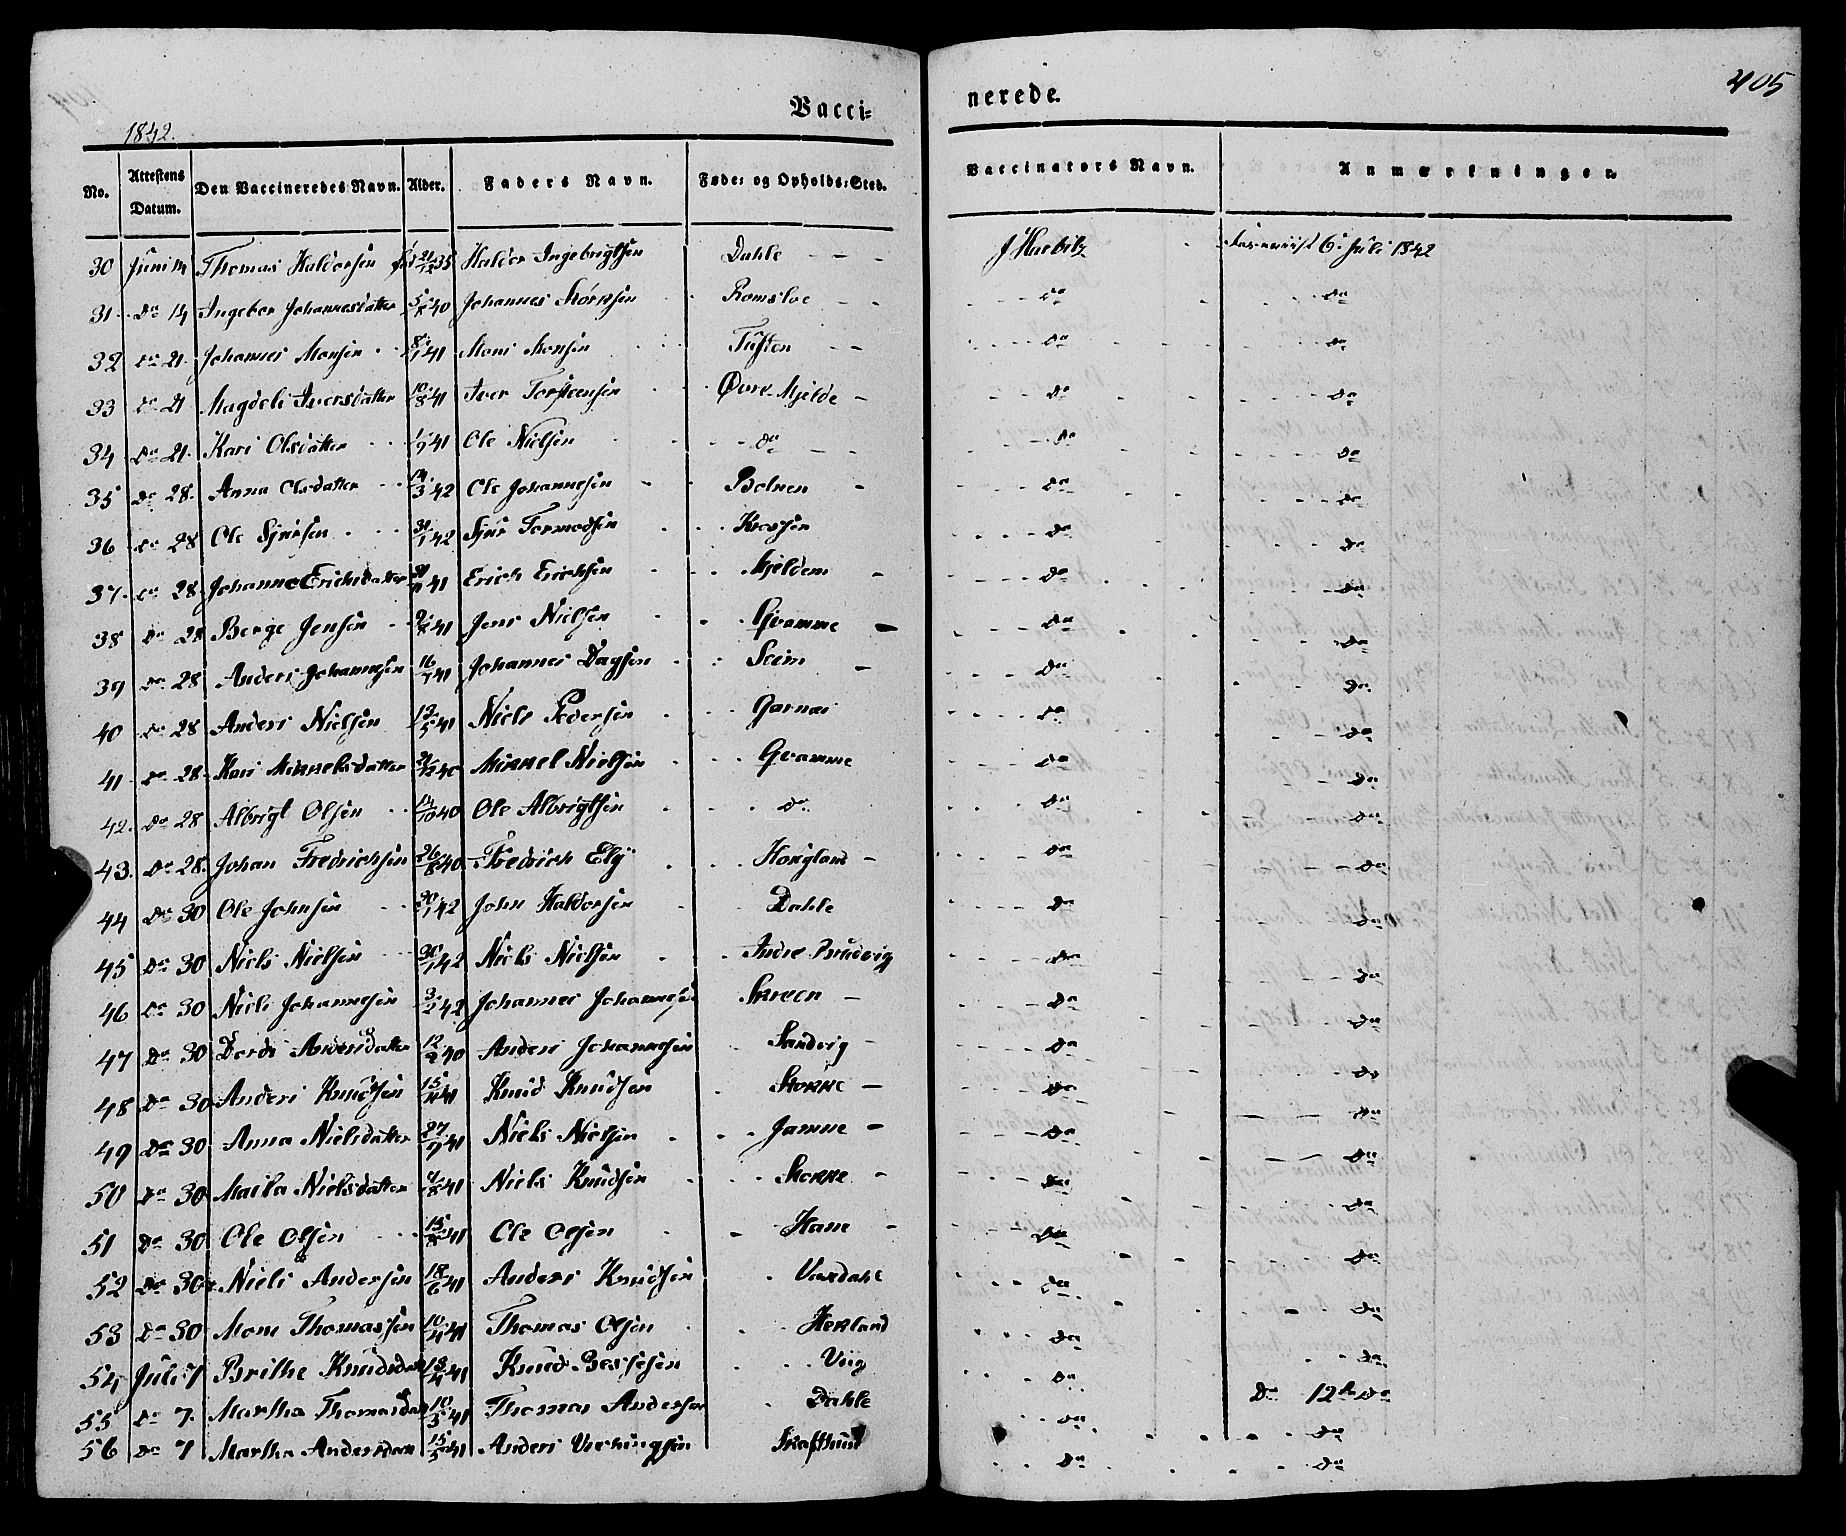 405
Vacci= nerede.
1842.
No. Attestens Datum. Den Vaccineredes Navn. Alder. Faders Navn. Føde= og Opholds=Sted. Vaccinators Navn. Anmærkninger.
30 Juni 14 Thomas Haldorsen fød 21/12 35 Haldor Ingebrigtsen Dahle 6 Juli 1842
31 do 14 Ingebor Johannesdatter 5/8 40 Johannes Romsloe do do
32 do 21 Johannes Monsen 8/1 41 Mons Monsen Tusten do do
33 do 21 Magdeli Iversdatter 10/8 41 Iver Torsteensen Øvre Mjelde do do
34 do 21 Kari Olsdatter 1/9 41 Ole Nielsen do do do
35 do 28 Anna Olsdatter 14/3 42 Ole Johannesen Bolnen do do
36 do 28 Ole Sjursen 31/1 42 Sjur Tormodsen do do
37 do 28 Johanne Erichsdatter 41 Erich Erichsen Mjeldem do do
38 do 28 Berge Jensen 41 Jens Nielsen Gvamme do do
39 do 28 Anders Johannesen 16/7 41 Johannes Dagsen Seim do do
40 do 28 Anders Nielsen 12/5 41 Niels Pedersen Garnæs do do
41 do 28 Kari Mikkelsdatter 40 Mikkel Nielsen Gvamme do do
42 do 28 Albrigt Olsen 14/10 40 Ole Albrigtsen do do do
43 do 28 Johan Fredrichsen 26/8 40 Fredrich Hougland do do
44 do 30 Ole Johnsen 20/1 42 John Haldorsen Dahle do do
45 do 30 Niels Nielsen 30/1 42 Niels Nielsen Indre Bruvig do do
46 do 30 Niels Johannesen 3/2 42 Johannes Johannesen Skreen do do
47 do 30 Dordi Andersdatter 12/2 40 Anders Johannesen Sandvig do do
48 do 30 Anders Knudsen 15/11 41 Knud Knudsen Stokke do do
49 do 30 Anna Nielsdatter 27/9 41 Niels Nielsen Jamne do do
50 do 30 Nielsdatter 4/8 41 Niels Knudsen Stokke do do
51 do 30 Ole Olsen 15/8 41 Ole Olsen Hane do do
52 do 30 Niels Andersen 18/6 41 Anders Knudsen Vardahl do do
53 do 30 Mons Thomassen 10/11 41 Thomas Olsen Herland do do
54 Juli 7 Brithe Knudsdatter 13/4 41 Knud Viig do do 12te do
55 do 7 Martha Thomasdatter 10/3 41 Thomas Andersen Dahle do do
56 do 7 Martha Andersdatter 15/5 41 Anders do do